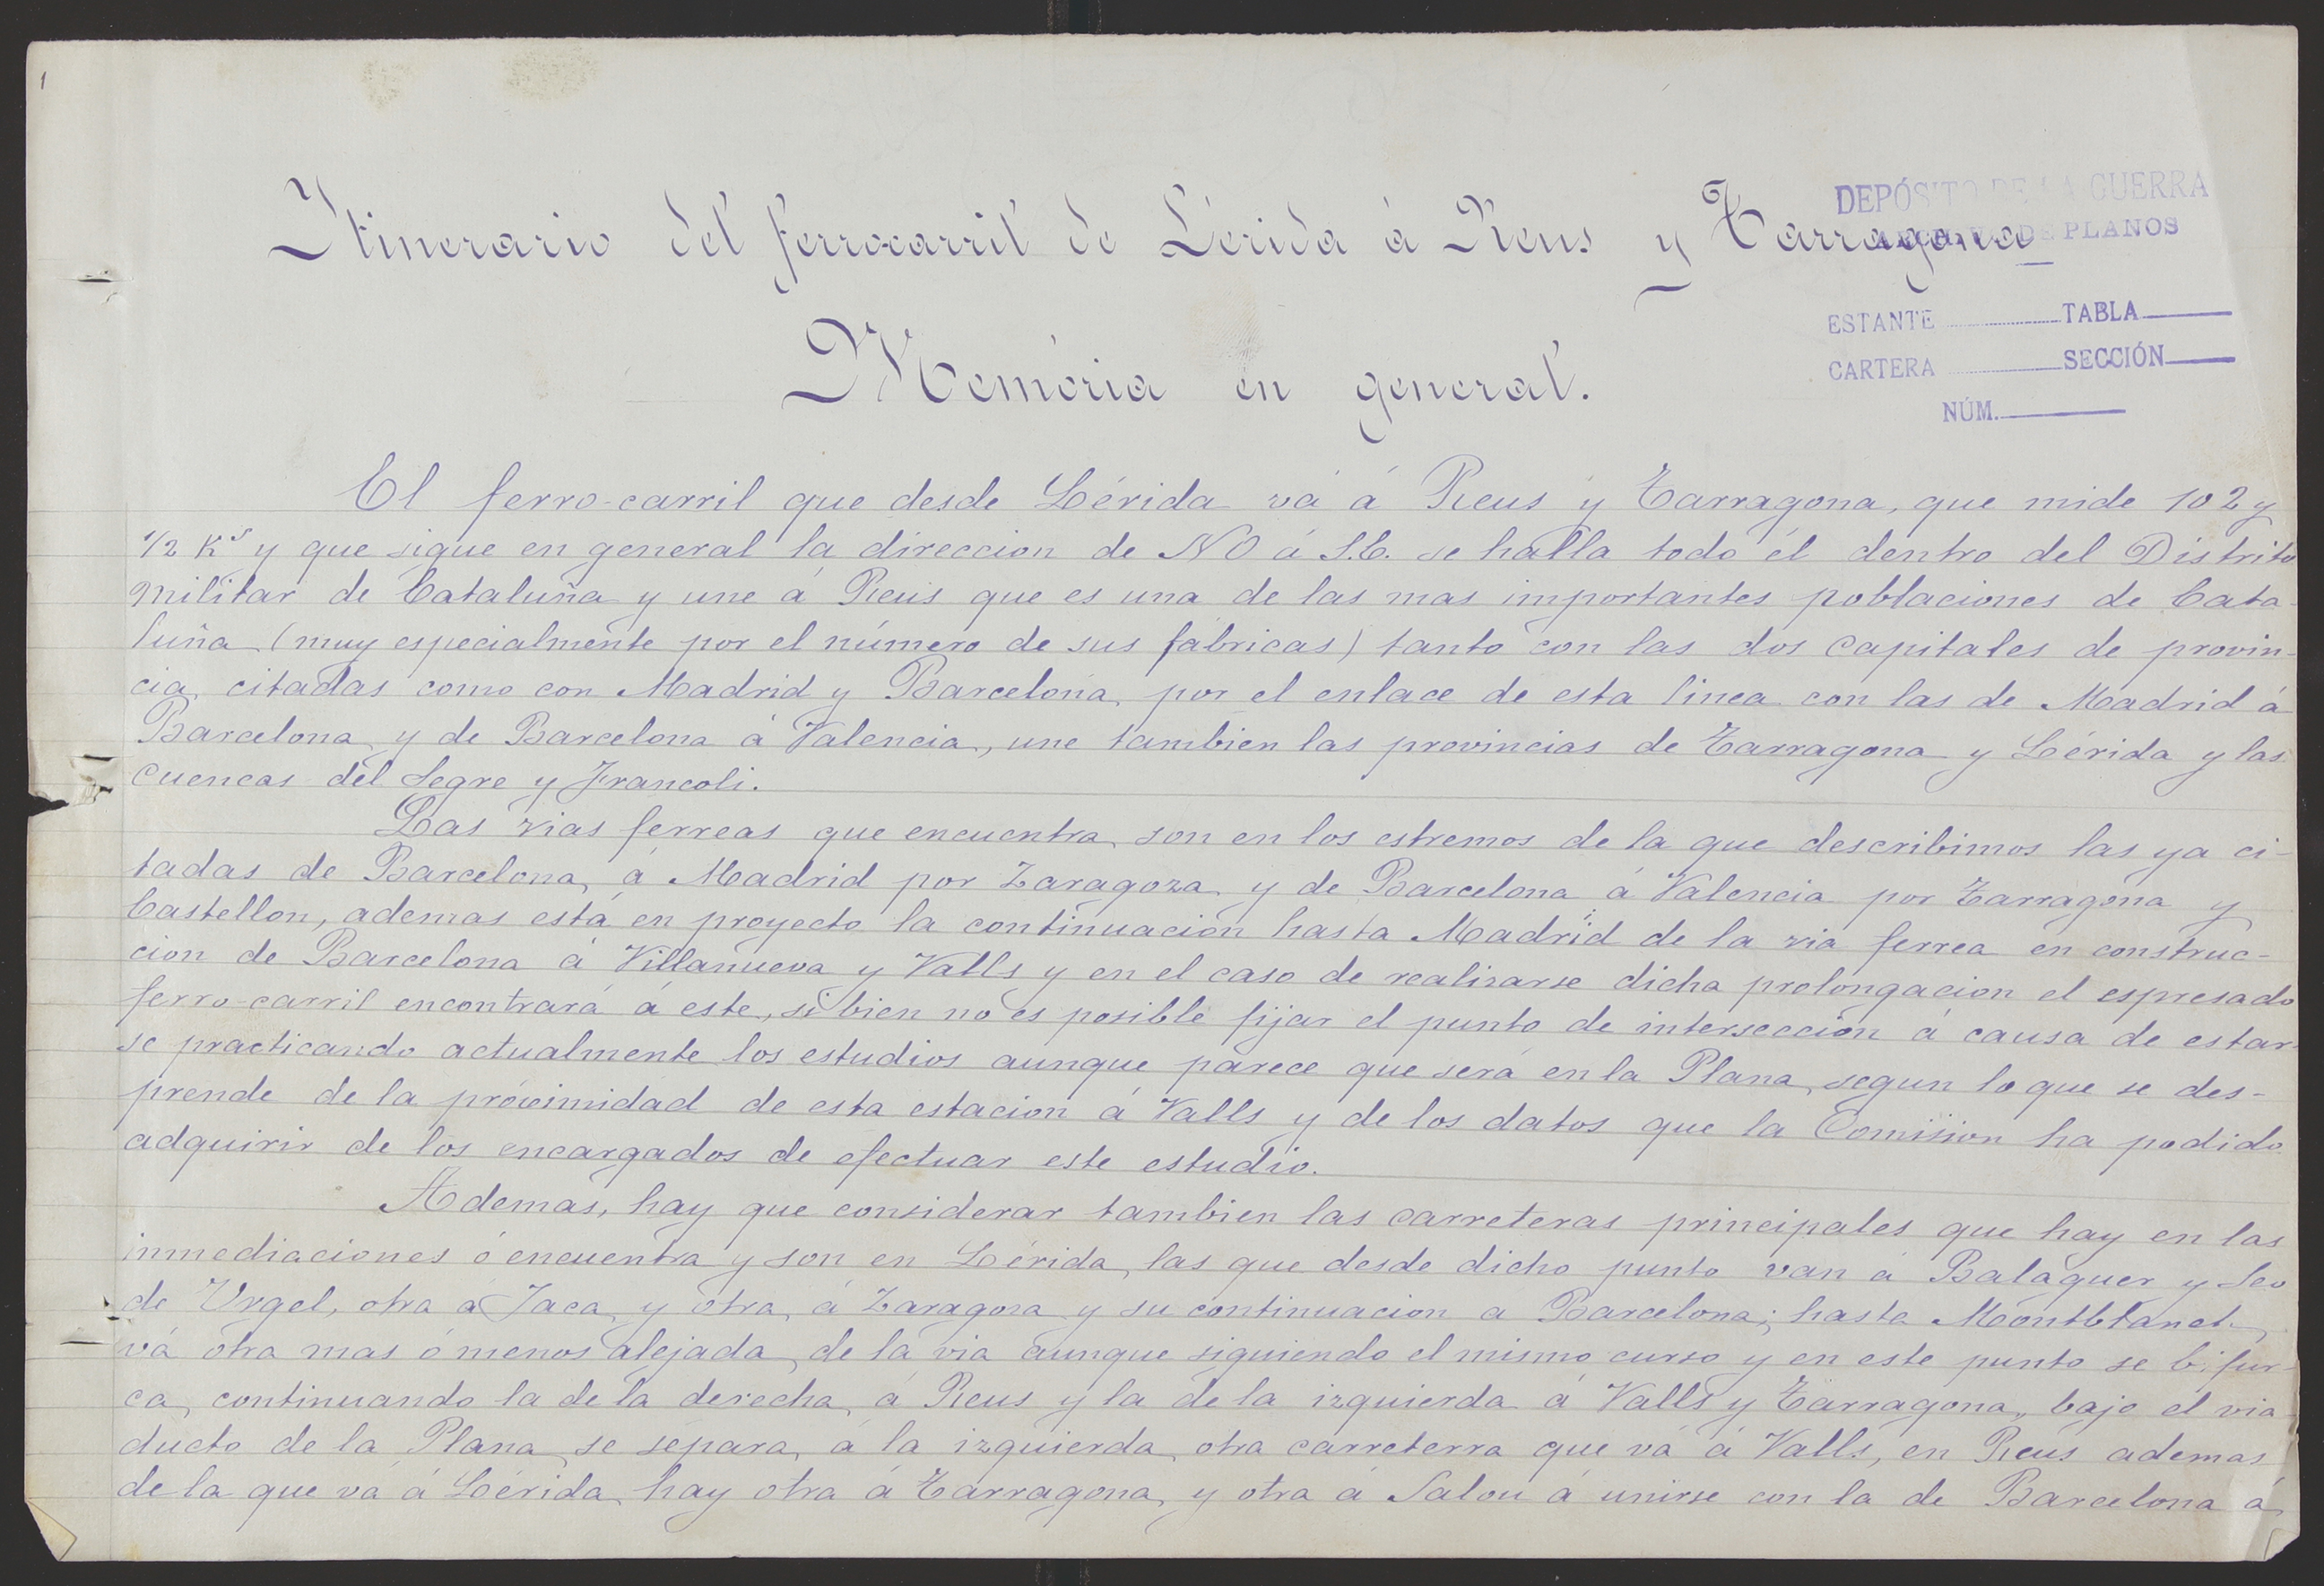 1
Itinerario del ferrocarril de Lérida á Reus y Tarragona
DEPÓSITO DE LA GUERRA
DE PLANOS
ESTANTE TABLA
CARTERA SECCIÓN
NÚM.
Memoria en general.
El ferro-carril que desde Lérida vá á Reus y Tarragona, que mide 102 y
1/2 Ks y que sigue en general la direccion de NO á S.E. se halla todo él dentro del Distrito
Militar de Cataluña y une á Reus que es una de las mas importantes poblaciones de Cata-
luña (muy especialmente por el número de sus fábricas) tanto con las dos Capitales de provin-
cia citadas como con Madrid y Barcelona, por el enlace de esta linea con las de Madrid á
Barcelona y de Barcelona á Valencia, une tambien las provincias de Tarragona y Lérida y las
Cuencas del Segre y Francoli.
Las vias ferreas que encuentra son en los estremos de la que describimos las ya ci-
tadas de Barcelona á Madrid por Zaragoza y de Barcelona á Valencia por Tarragona y
Castellon, ademas está en proyecto la continuacion hasta Madrid de la via ferrea en construc-
cion de Barcelona á Villanueva y Valls y en el caso de realizarse dicha prolongacion el espresado
ferro-carril encontrará á este, si bien no es posible fijar el punto de interseccion á causa de estar-
se practicando actualmente los estudios aunque parece que será en la Plana, segun lo que se des-
prende de la próximidad de esta estacion á Valls y de los datos que la Comision ha podido
adquirir de los encargados de efectuar este estudio.
Ademas, hay que considerar tambien las carreteras principales que hay en las
inmediaciones ó encuentra y son en Lérida, las que desde dicho punto van á Balaguer y Seo
de Urgel, otra á Jaca y otra á Zaragoza y su continuacion a Barcelona; hasta Montblanch
vá otra mas ó menos alejada de la via aunque siguiendo el mismo curso y en este punto se bifur-
ca, continuando la de la derecha á Reus y la de la izquierda á Valls y Tarragona, bajo el via-
ducto de la Plana se separa, á la izquierda otra carreterra que vá á Valls, en Reus ademas
de la que vá á Lérida hay otra á Tarragona, y otra á Salou á unirse con la de Barcelona á